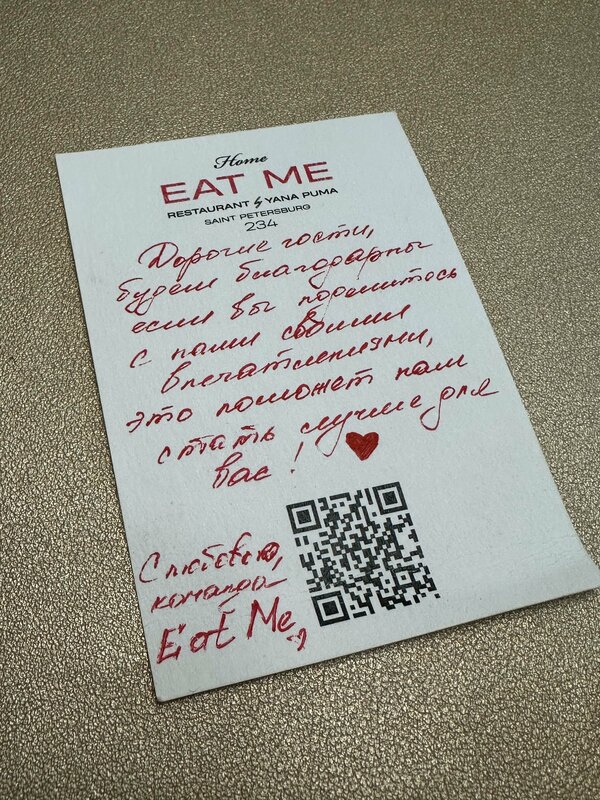 Home
EAT ME
RESTAURANT by YANA PUMA
SAINT PETERSBURG
234
Дорогие гости,
будем благодарны
если вы поделитесь
с нами своими
впечатлениями,
это поможет нам
стать лучше для
вас!
С любовью,
команда
Eat Me